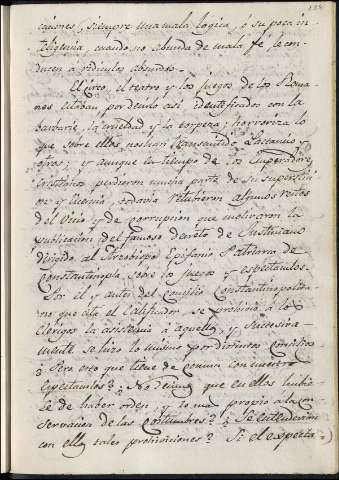 caciones, siempre una mala logica, o su poca in
teligencia, cuando no abunda de mala fé, le con
ducen a ridiculos absurdos.
El circo, el teatro y los juegos de los Roma
nos estaban, por decirlo asi, identificados con la
barbarie, la crueldad y la torpeza; horroriza lo
que sobre ellos nos han transmitido Lactancio y
otros; y aunque en tiempo de los Emperadores
Cristianos perdieron mucha parte de su supersticion
y licencia, todavia retubieron algunos restos
del vicio y de corrupcion que motivaron la
publicacion del famoso decreto de Justiniano
dirigido al Arzobispo Epifanio Patriarca de
Constantinopla sobre los juegos y espectaculos.
Por el y antes del concilio Constantinopolita
no que cita el Calificador se prohibió á los
Clerigos la asistencia á aquellos, y sucesiva-
mente se hizo lo mismo por distintos concilios
¿Pero esto que tiene de comun con nuestros
Espectaculos? ¿No decimos que en ellos hubie
se de haber orden, y tono propio a la con
servacion de las costumbres? ¿Se entenderian
con ellos tales prohiviciones? Si el experto